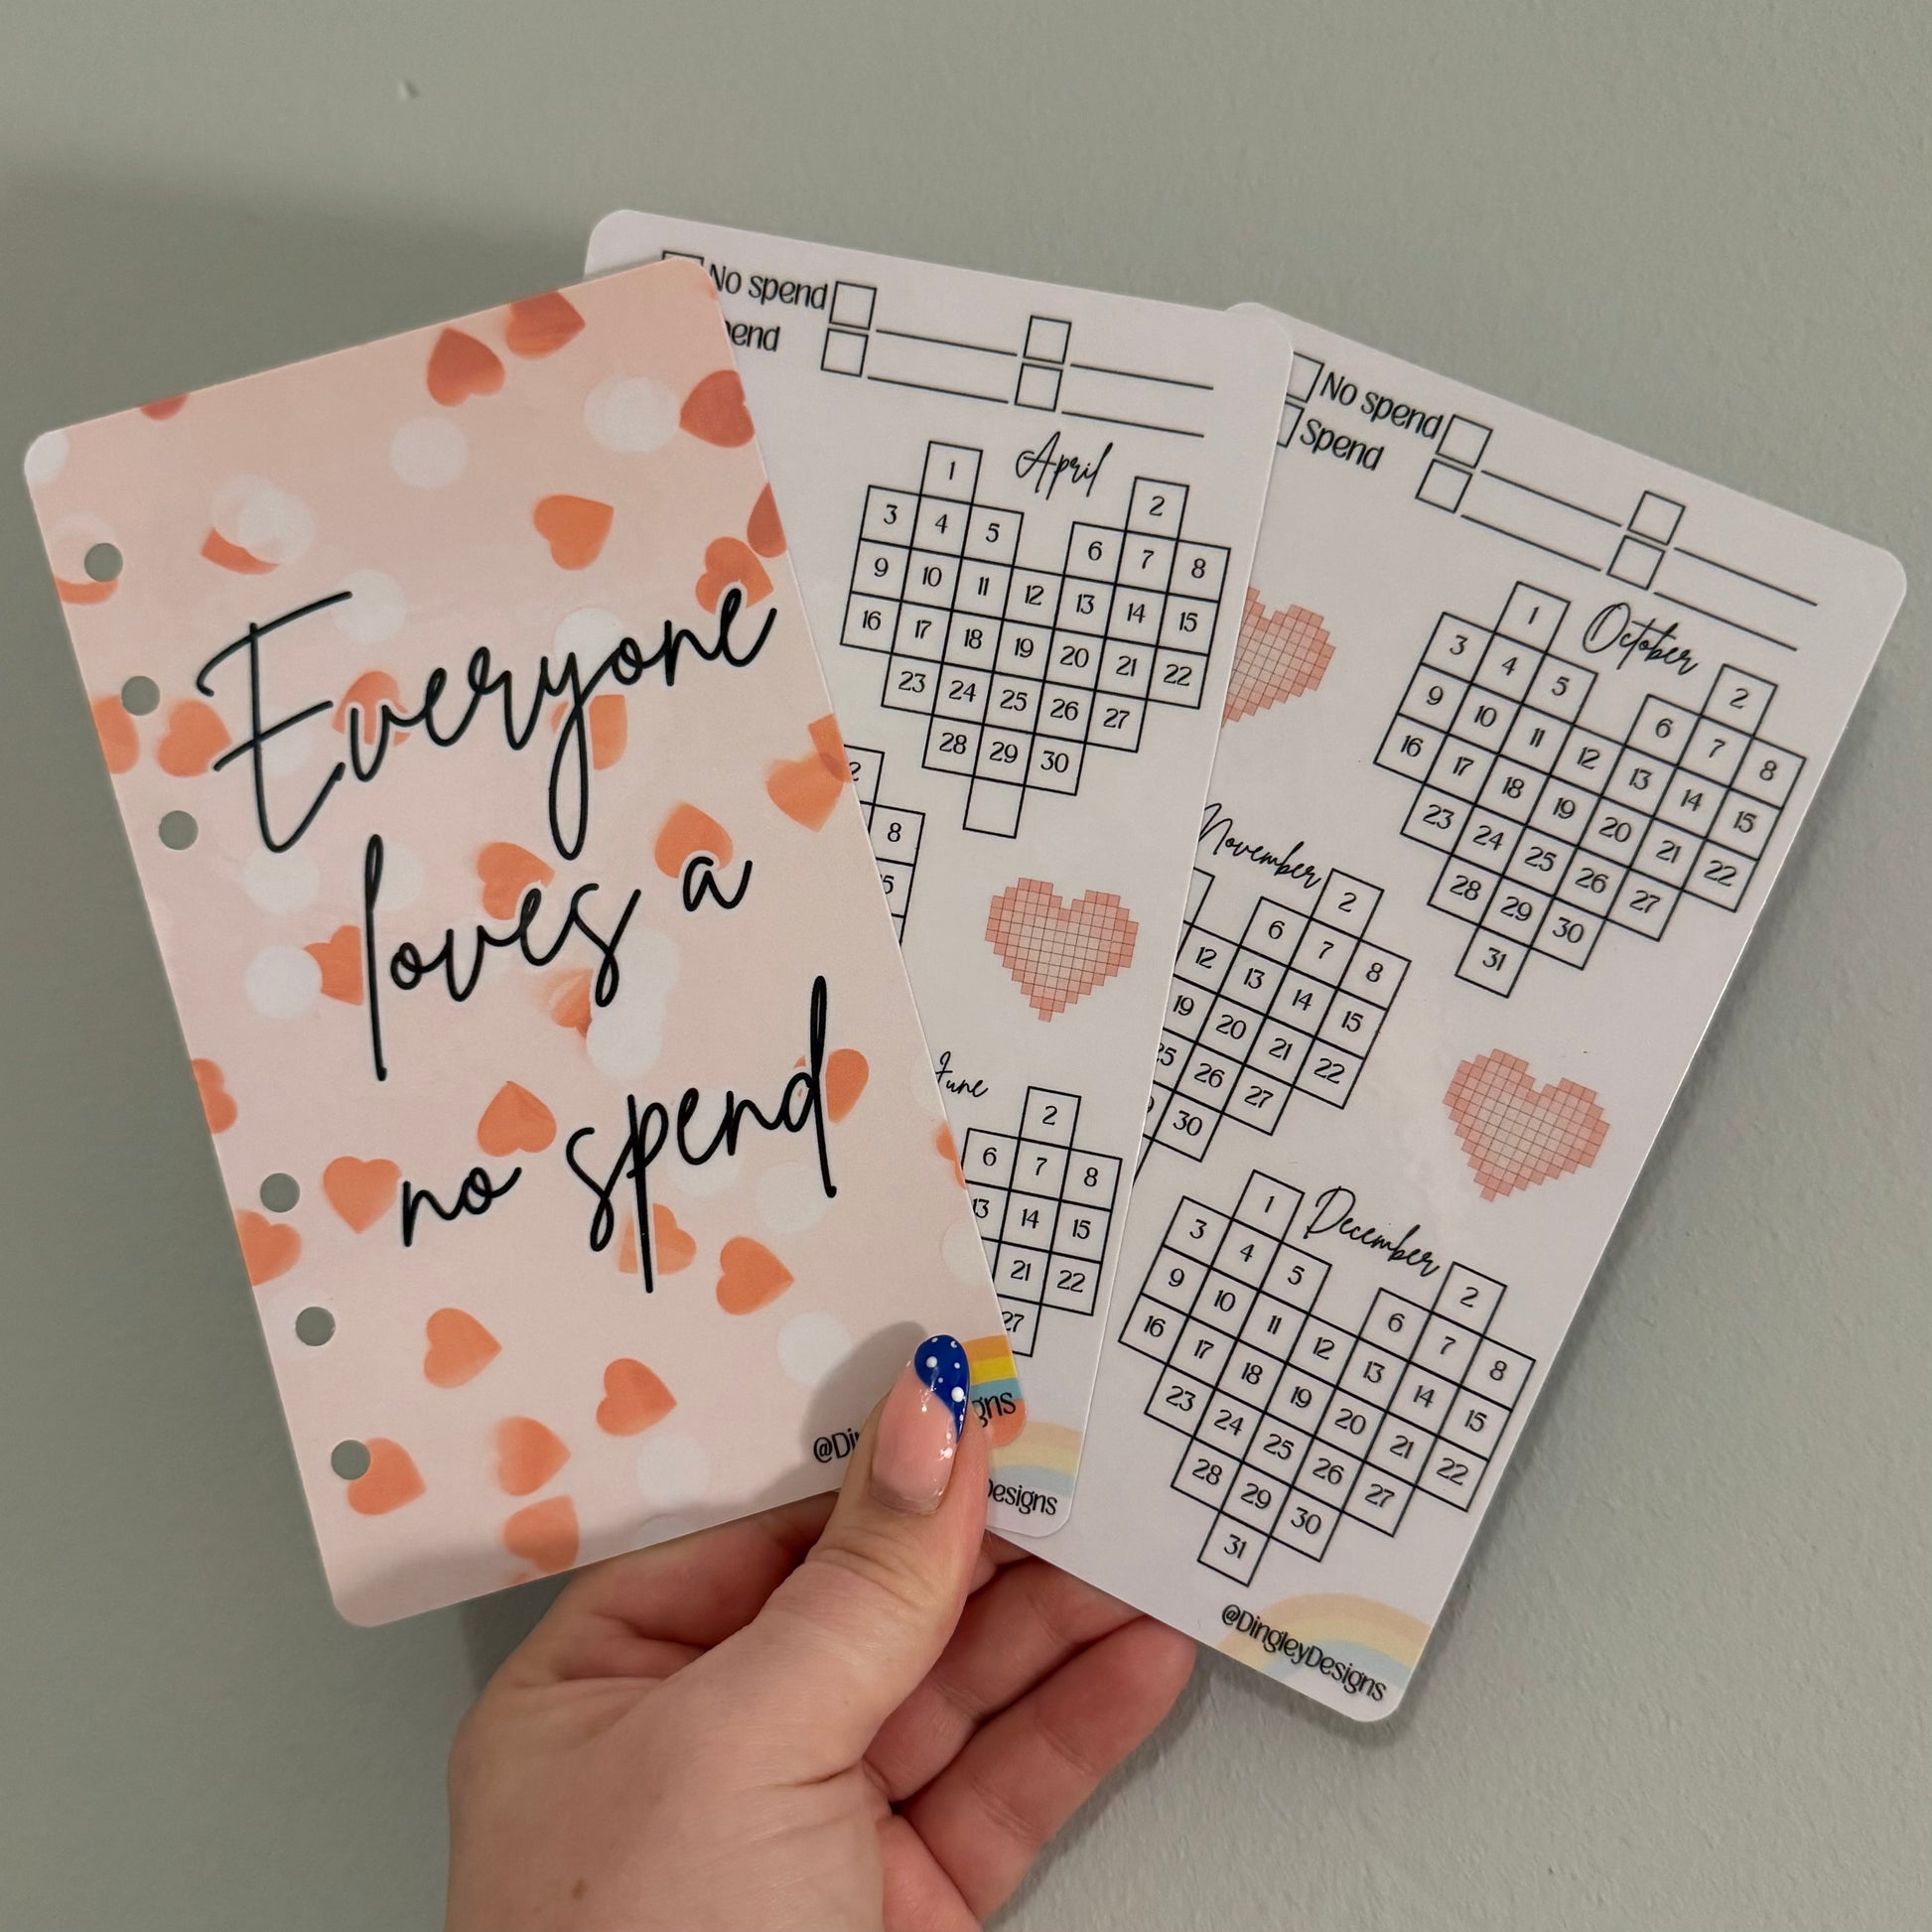 Everyone
loves a
no spend
No spend
April
1 2
3 4 5 6 7 8
9 10 11 12 13 14 15
16 17 18 19 20 21 22
23 24 25 26 27
28 29 30
2
8
June
2
6 7 8
13 14 15
21 22
27
No spend
Spend
October
1 2
3 4 5 6 7 8
9 10 11 12 13 14 15
16 17 18 19 20 21 22
23 24 25 26 27
28 29 30
31
November
2
6 7 8
12 13 14 15
19 20 21 22
25 26 27
30
December
1 2
3 4 5 6 7 8
9 10 11 12 13 14 15
16 17 18 19 20 21 22
23 24 25 26 27
28 29 30
31
@DingleyDesigns